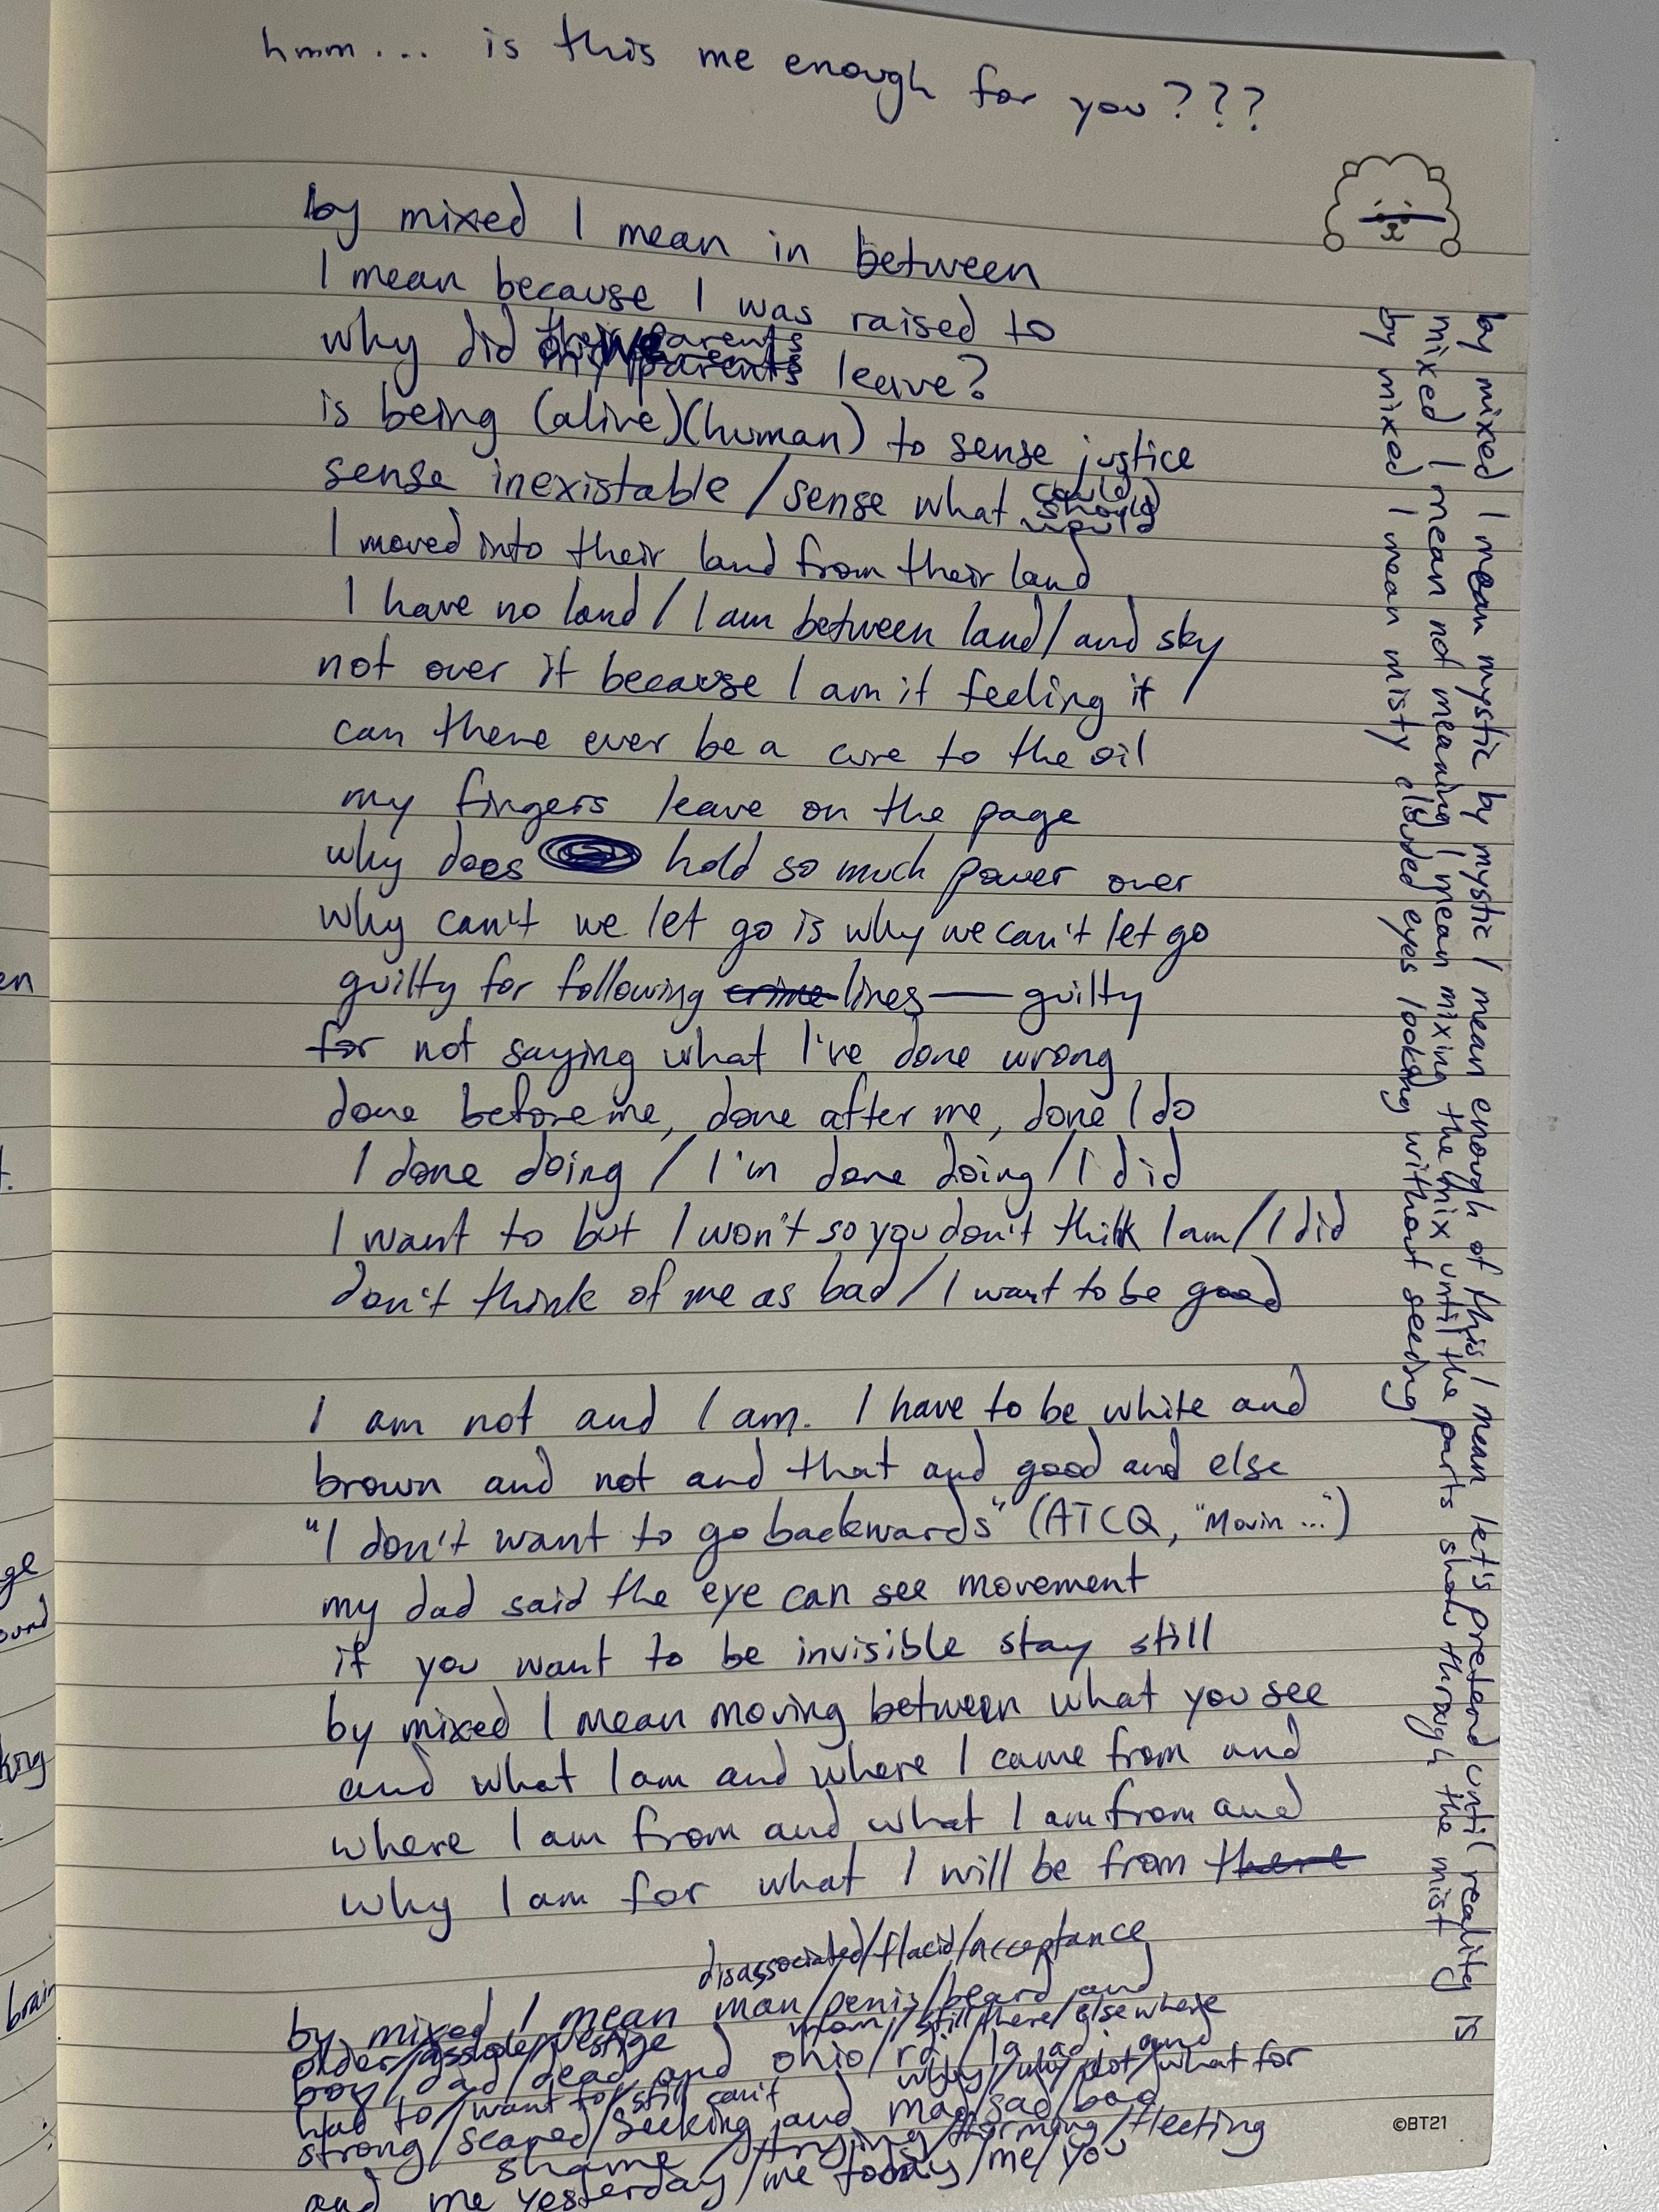 hmm... is this me enough for you???
by mixed I mean in between
I mean because I was raised to
why did their parents
my parents leave?
is being (alive)(human) to sense justice
sense inexistable / sense what could
should
would
I moved into their land from their land
I have no land / I am between land / and sky
not over it because I am it feeling it /
can there ever be a cure to the oil
my fingers leave on the page
why does hold so much power over
why can't we let go is why we can't let go
guilty for following crime lines — guilty
for not saying what I've done wrong
done before me, done after me, done I do
I done doing / I'm done doing / I did
I want to but I won't so you don't think I am / I did
don't think of me as bad / I want to be good
I am not and I am. I have to be white and
brown and not and that and good and else
"I don't want to go backwards" (ATCQ, "Movin ...")
my dad said the eye can see movement
if you want to be invisible stay still
by mixed I mean moving between what you see
and what I am and where I came from and
where I am from and what I am from and
why I am for what I will be from there
disassociated/flacid/acceptance
by mixed I mean man/penis/beard and
older/asshole/vestige mom/still there/elsewhere
boy/dad/dead and ohio/
had to/want to/still can't why/why not/what for
strong/scared/seeking and mad/sad/bad
shame/trying/forming/fleeting
and me yesterday/me today/me/you
by mixed I mean mystic by mystic I mean enough of this I mean let's pretend until reality is
mixed I mean not meaning I mean mixing the mix until the parts show through the mist
by mixed I mean misty clouded eyes looking without seeing
©BT21
en
ge
ound
king
brain